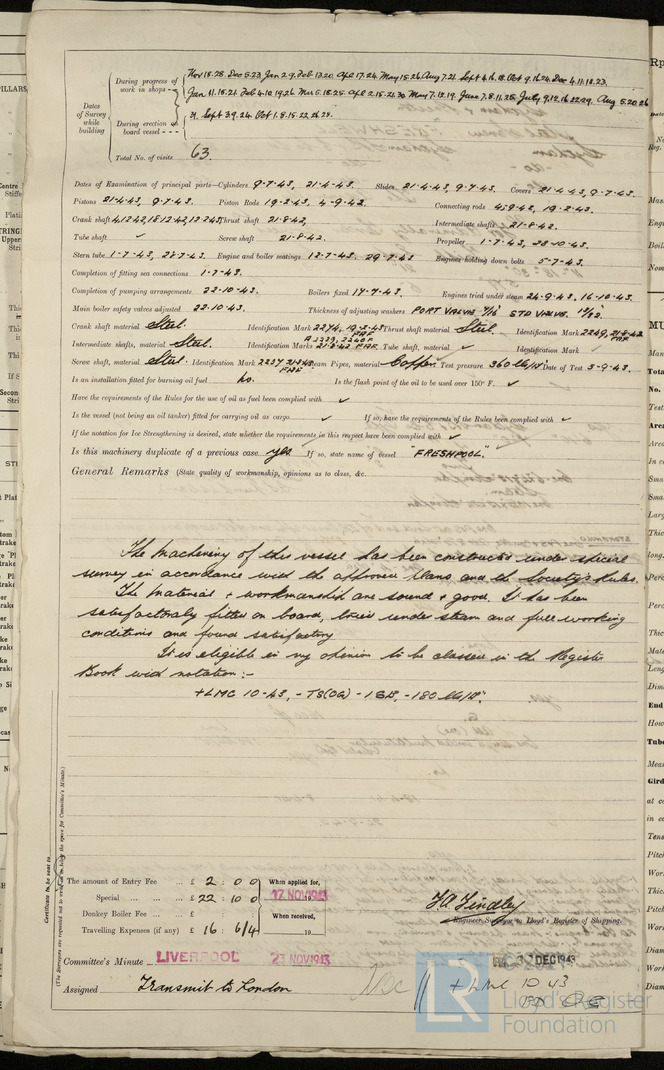 Dates of Survey while building
During progress of work in shops - - Nov 18.25. Dec 5.23 Jan 2.9. Feb 13.20 Apl 17.24. May 15.26 Aug 7.21. Sept 4.16.18. Oct 9.16.24. Dec 4.11.18.23.
Jan 11.18.21 Feb 4.10.19.26 Mar 5.18.25 Apl 2.15.21.30 May 7.12.19. June 7.8.11.25. July 9.12.16.22.29. Aug 5.20.26
During erection on board vessel - - - 31. Sept 3.9.24. Oct 1.8.15.22.26.28.
Total No. of visits 63.
Dates of Examination of principal parts—Cylinders 9-7-43, 21-4-43. Slides 21-4-43, 9-7-43. Covers 21-4-43, 9-7-43.
Pistons 21-4-43, 9-7-43. Piston Rods 19-2-43, 4-9-42. Connecting rods 4-9-42, 19-2-43.
Crank shaft Thrust shaft 21-8-42, Intermediate shafts 21-8-42.
Tube shaft ✓ Screw shaft 21-8-42. Propeller 1-7-43, 28-10-43.
Stern tube 1-7-43, Engine and boiler seatings 12-7-43, 29-7-43 Engines holding down bolts 5-7-43.
Completion of fitting sea connections 1-7-43.
Completion of pumping arrangements 22-10-43. Boilers fixed 17-7-43. Engines tried under steam 24-9-43, 16-10-43.
Main boiler safety valves adjusted 22.10.43. Thickness of adjusting washers PORT VALVE STD VALVE
Crank shaft material Steel. Identification Mark 2274, 19-2-43 Thrust shaft material Steel. Identification Mark 2269, 21-8-42 FAF
Intermediate shafts, material Steel. Identification Marks 21-8-42 FAF Tube shaft, material ✓ Identification Mark ✓
Screw shaft, material Steel. Identification Mark 2237 21-8-42 FAF Steam Pipes, material Copper Test pressure 360 lb/□" Date of Test 3-9-43.
Is an installation fitted for burning oil fuel no. Is the flash point of the oil to be used over 150° F. ✓
Have the requirements of the Rules for the use of oil as fuel been complied with ✓
Is the vessel (not being an oil tanker) fitted for carrying oil as cargo ✓ If so, have the requirements of the Rules been complied with ✓
If the notation for Ice Strengthening is desired, state whether the requirements in this respect have been complied with ✓
Is this machinery duplicate of a previous case yes If so, state name of vessel "FRESHPOOL".
General Remarks (State quality of workmanship, opinions as to class, &c.
The Machinery of this vessel has been constructed under special
survey in accordance with the approved Plans and the Society's Rules.
The material + workmanship are sound + good. It has been
satisfactorily fitted on board, tried under steam and full working
conditions and found satisfactory
It is eligible in my opinion to be classed in the Register
Book with notation:-
+LMC 10-43, - TS(OG) - 1SB, - 180 lb/□".
Certificate to be sent to
(The Surveyors are requested not to write on or below the space for Committee's Minute.)
The amount of Entry Fee ... £ 2 : 0 0
Special ... ... £ 22 : 10 0
Donkey Boiler Fee ... £ :
Travelling Expenses (if any) £ 16 : 6/4
When applied for,
17 NOV 1943
When received,
19
Engineer Surveyor to Lloyd's Register of Shipping.
Committee's Minute LIVERPOOL 23 NOV 1943 DEC 1943
Assigned Transmit to London
+ LMC 10 43
LR Lloyd's Register Foundation